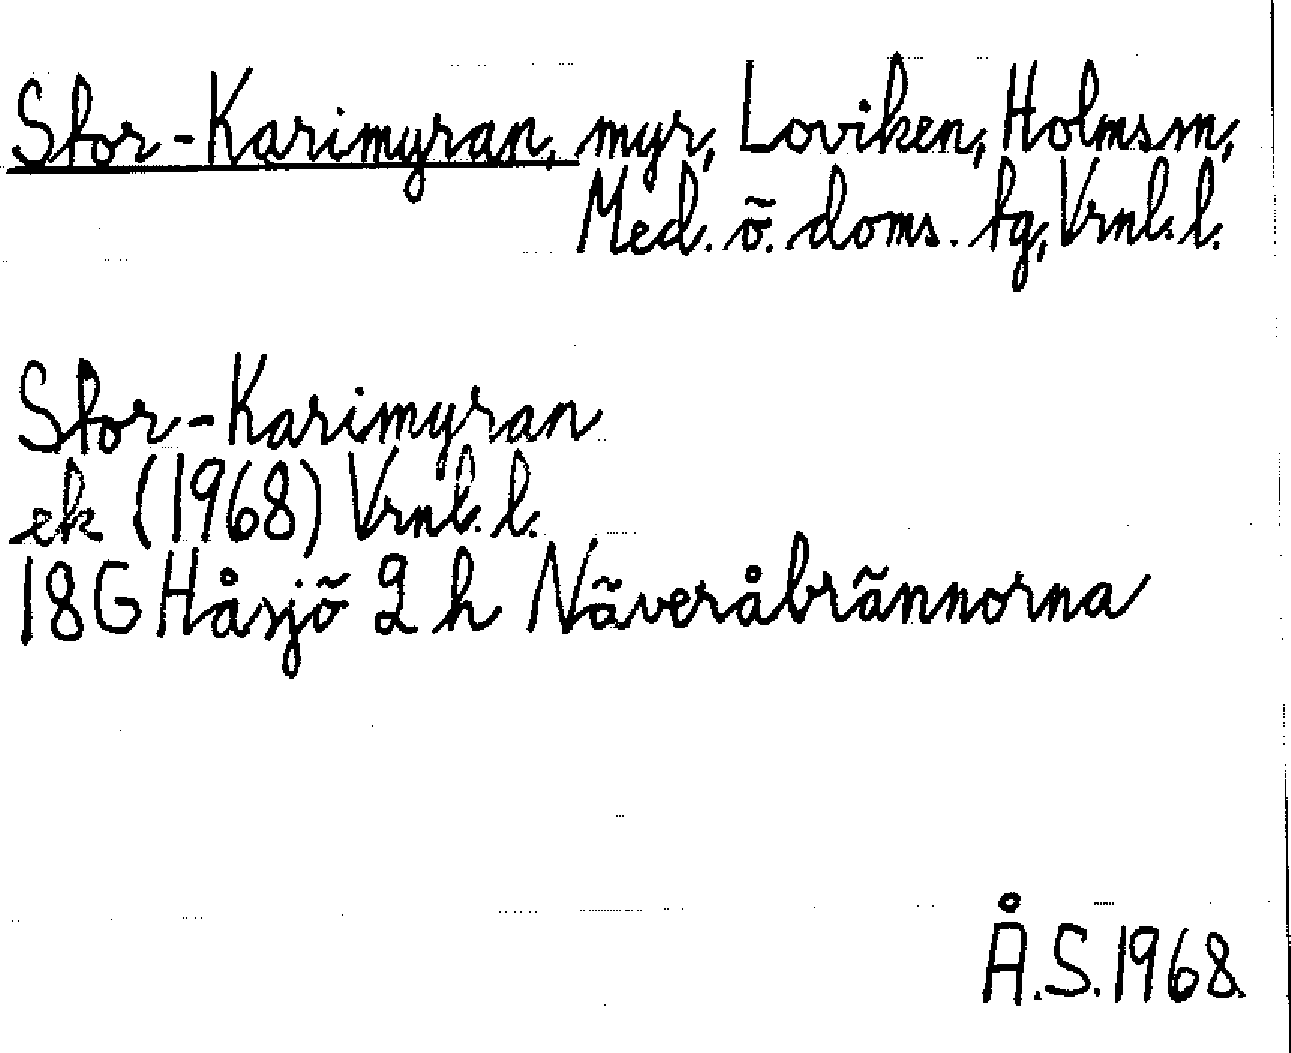 Stor-Karimyran, myr, Loviken, Holmsm,
Med. ö. doms. tg, Vrnl. l.
Stor-Karimyran
ek (1968) Vrnl. l.
18G Håsjö 2 h Näveråbrännorna
Å.S. 1968.